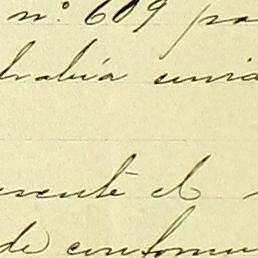 nº 609 pa
había envia
esenté el
de conformi